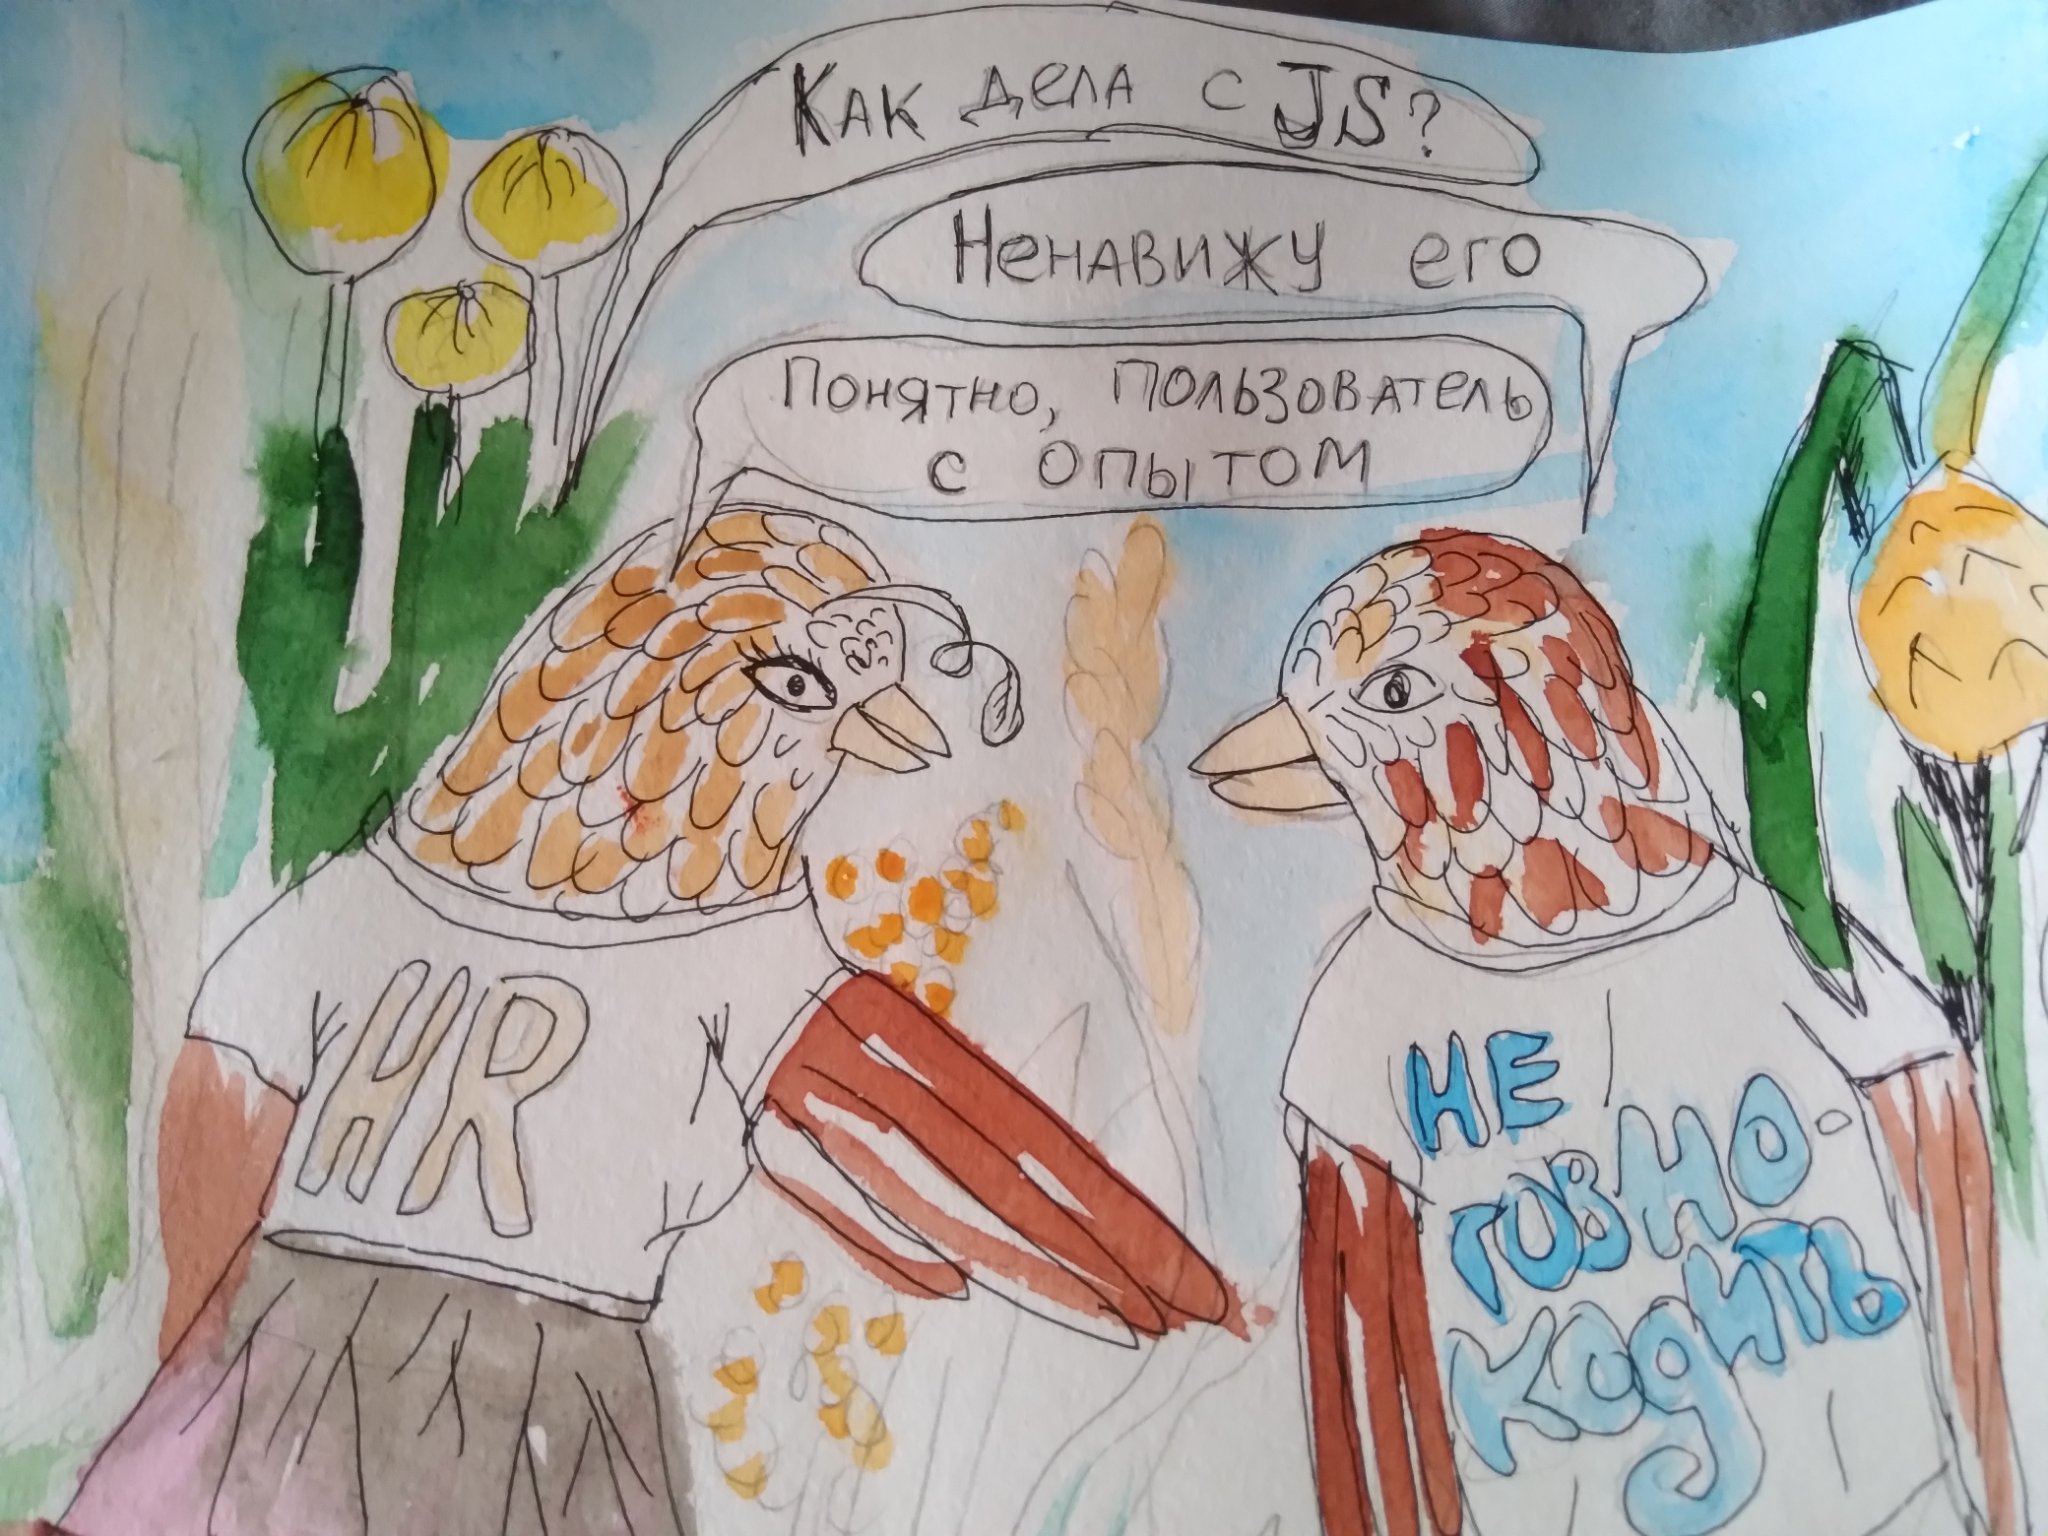 Как дела с JS?
Ненавижу его
Понятно, пользователь
с опытом
HR
НЕ
ГОВНО-
КОДИТЬ